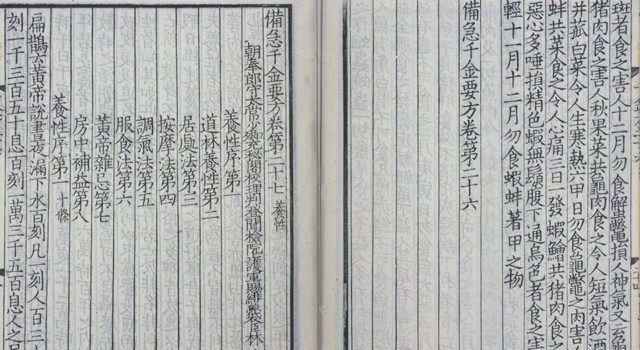 斑者食之害人十二月勿食蟹鼈損人神氣又云龜
猪肉食之害人秋果菜共龜肉食之令人短氣飲酒
并菰白菜令人生寒熱六甲日勿食龜鼈之肉害
蚌共菜食之令人心痛三日一發蝦鱠共猪肉食之
惡心多唾損精色蝦無鬚腹下通烏色者食之害
輕十一月十二月勿食蝦蚌著甲之物
備急千金要方卷第二十六
備急千金要方卷第二十七 養性
朝奉郎守太常少卿充秘閣校理判登聞檢院上護軍賜緋魚袋臣林
養性序第一
道林養性第二
居處法第三
按摩法第四
調氣法第五
服食法第六
黃帝雜忌第七
房中補益第八
養性序第一 十條
扁鵲云黃帝說晝夜漏下水百刻凡一刻人百三
刻一千三百五十息百刻一萬三千五百息人之